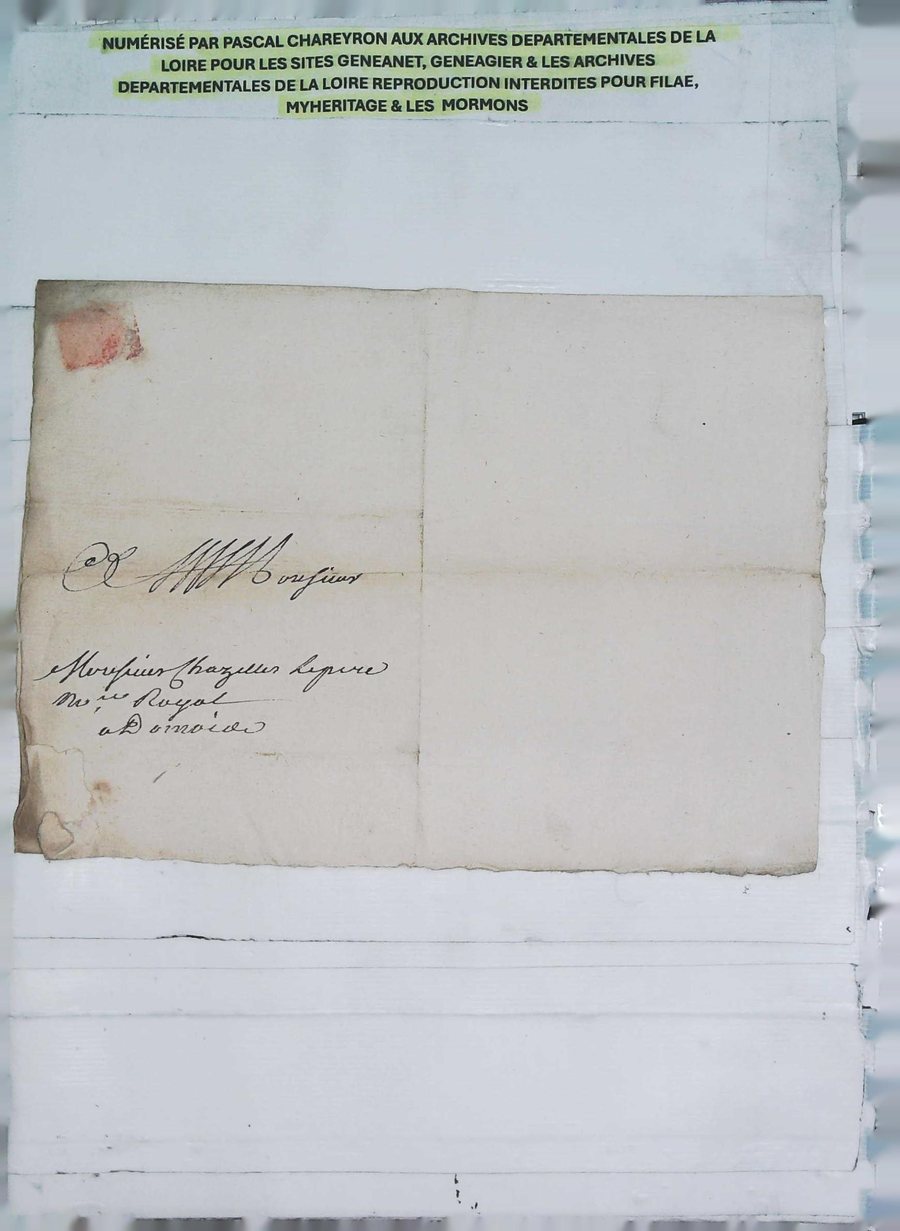 NUMÉRISÉ PAR PASCAL CHAREYRON AUX ARCHIVES DEPARTEMENTALES DE LA
LOIRE POUR LES SITES GENEANET, GENEAGIER & LES ARCHIVES
DEPARTEMENTALES DE LA LOIRE REPRODUCTION INTERDITES POUR FILAE,
MYHERITAGE & LES MORMONS
A Monsieur
Monsieur Chazelles Lepere
Royal
a